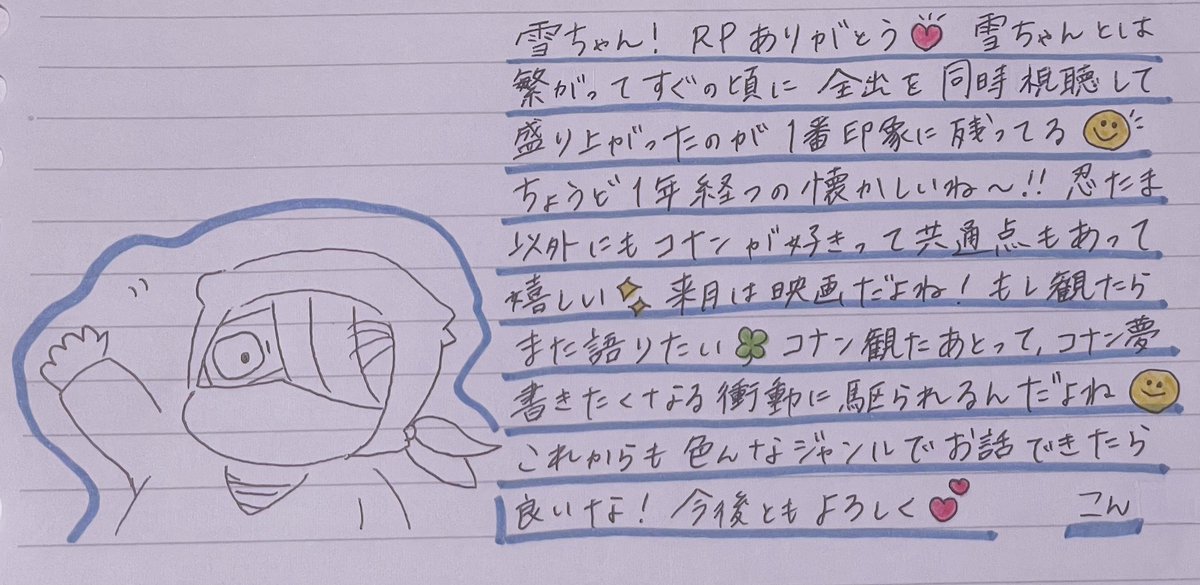 雪ちゃん! RPありがとう 雪ちゃんとは
繋がってすぐの頃に 全出を同時視聴して
盛り上がったのが1番印象に残ってる
ちょうど1年経つの懐かしいね〜!! 忍たま
以外にもコナンが好きって共通点もあって
嬉しい 来月は映画だよね! もし観たら
また語りたい コナン観たあとって、コナン夢
書きたくなる衝動に駆られるんだよね
これからも色んなジャンルでお話できたら
良いな! 今後ともよろしく こん